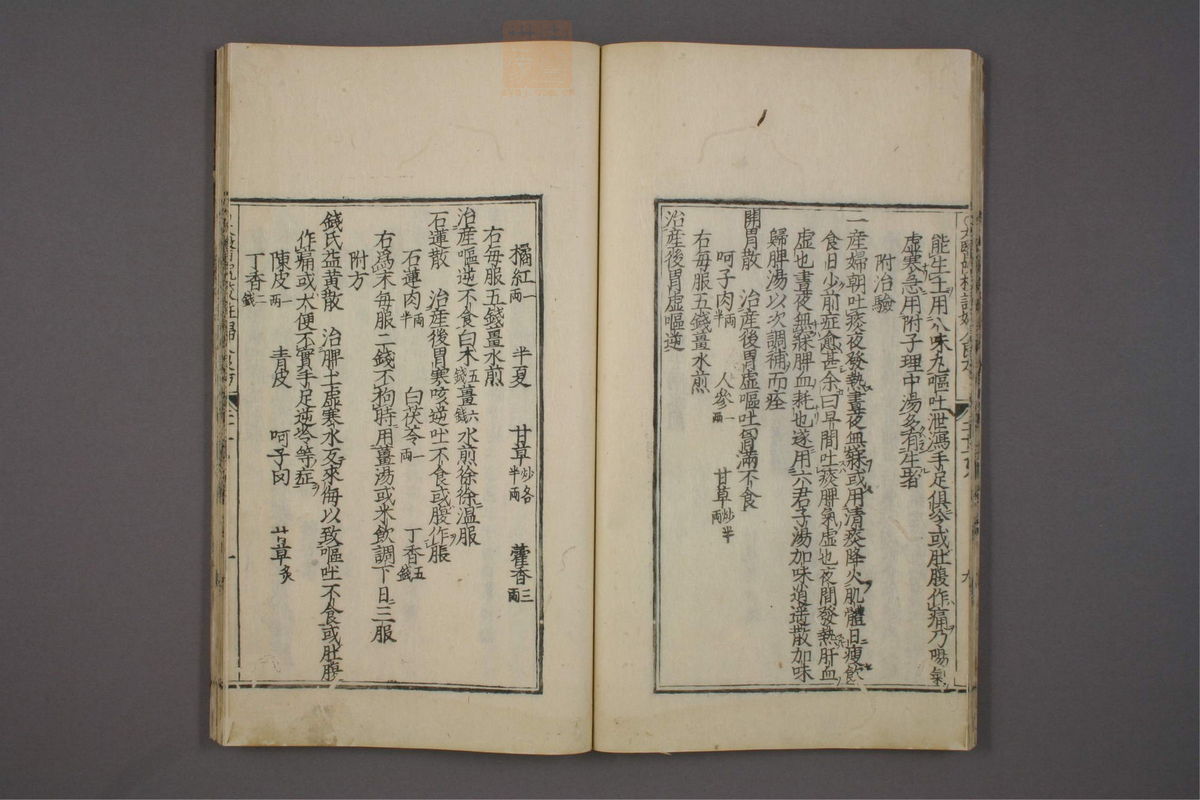 能生土用八味丸嘔吐泄瀉手足俱冷或肚腹作痛乃陽氣
虛寒急用附子理中湯多有生者
附治驗
一產婦朝吐痰夜發熱晝夜無寐或用清痰降火肌體日瘦飲
食日少前症愈甚余曰早間吐痰脾氣虛也夜間發熱肝血
虛也晝夜無寐脾血耗也遂用六君子湯加味逍遙散加味
歸脾湯以次調補而痊
開胃散 治產後胃虛嘔吐胷滿不食
呵子肉半兩 人參一兩 甘草炒半兩
右每服五錢薑水煎
治產後胃虛嘔逆
橘紅一兩 半夏 甘草炒各半兩 藿香三兩
右每服五錢薑水煎
治產嘔逆不食白朮五錢薑六錢水煎徐徐温服
石蓮散 治產後胃寒咳逆吐不食或腹作脹
石蓮肉兩半 白茯苓一兩 丁香五錢
右爲末每服二錢不拘時用薑湯或米飲調下日三服
附方
錢氏益黃散 治脾土虛寒水反來侮以致嘔吐不食或肚腹
作痛或大便不實手足逆冷等症
陳皮一兩 青皮 呵子肉 甘草炙
丁香二錢